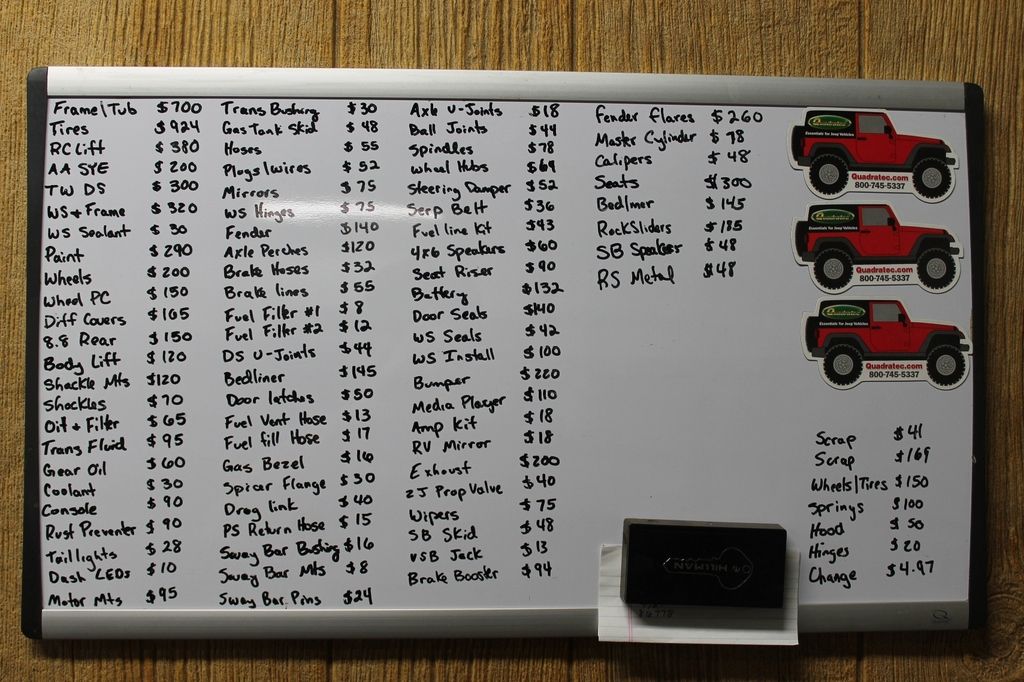 Frame/Tub $700
Tires $924
RC Lift $380
AA SYE $200
TW DS $300
WS + Frame $320
WS Sealant $30
Paint $290
Wheels $200
Wheel PC $150
Diff Covers $165
8.8 Rear $150
Body Lift $120
Shackle Mts $120
Shockles $70
Oil + Filter $65
Trans Fluid $95
Gear Oil $60
Coolant $30
Console $90
Rust Preventer $90
Taillights $28
Dash LEDs $10
Motor Mts $95
Trans Bushing $30
Gas Tank Skid $48
Hoses $55
Plugs/wires $52
Mirrors $75
WS Hinges $75
Fender $140
Axle Perches $120
Brake Hoses $32
Brake lines $55
Fuel Filter #1 $8
Fuel Filter #2 $12
DS U-Joints $44
Bedliner $145
Door latches $50
Fuel Vent Hose $13
Fuel fill Hose $17
Gas Bezel $16
Spicer Flange $30
Drag link $40
PS Return Hose $15
Sway Bar Bushing $16
Sway Bar Mts $8
Sway Bar Pins $24
Axle U-Joints $18
Ball Joints $44
Spindles $78
Wheel Hubs $64
Steering Damper $52
Serp Belt $36
Fuel line Kit $43
4x6 Speakers $60
Seat Riser $90
Battery $132
Door Seals $140
WS Seals $42
WS Install $100
Bumper $220
Media Player $110
Amp Kit $18
RV Mirror $18
Exhaust $200
ZJ Prop Valve $40
Wipers $75
SB Skid $48
USB Jack $13
Brake Booster $94
Fender flares $260
Master Cylinder $78
Calipers $48
Seats $300
Bedlmer $145
RockSliders $135
SB Speakers $48
RS Metal $48
Quadratec
Essentials for Jeep Vehicles
Quadratec.com
800-745-5337
Quadratec
Essentials for Jeep Vehicles
Quadratec.com
800-745-5337
Quadratec
Essentials for Jeep Vehicles
Quadratec.com
800-745-5337
Scrap $41
Scrap $169
Wheels/Tires $150
Springs $100
Hood $50
Hinges $20
Change $4.97
HILLMAN